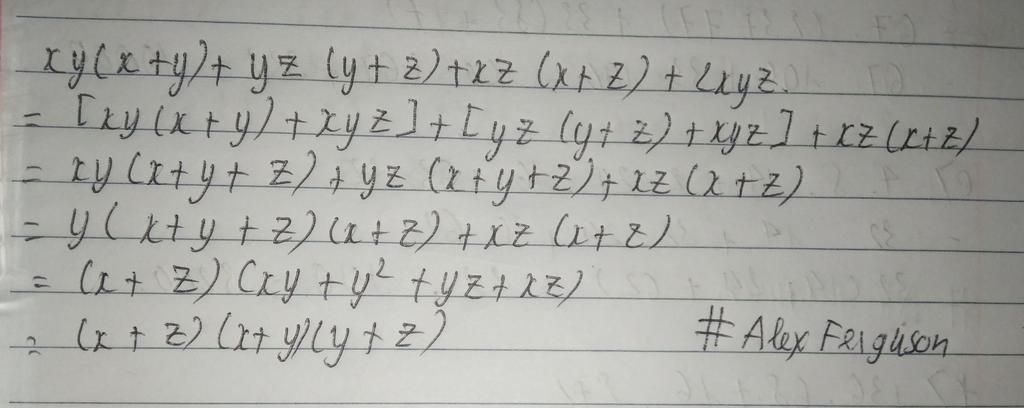 xy(x+y)+yz(y+z)+xz(x+z)+2xyz.
= [xy(x+y)+xyz]+[yz(y+z)+xyz]+xz(x+z)
= xy(x+y+z)+yz(x+y+z)+xz(x+z)
= y(x+y+z)(x+z)+xz(x+z)
= (x+z)(xy+y²+yz+xz)
= (x+z)(x+y)(y+z) # Alex Ferguson